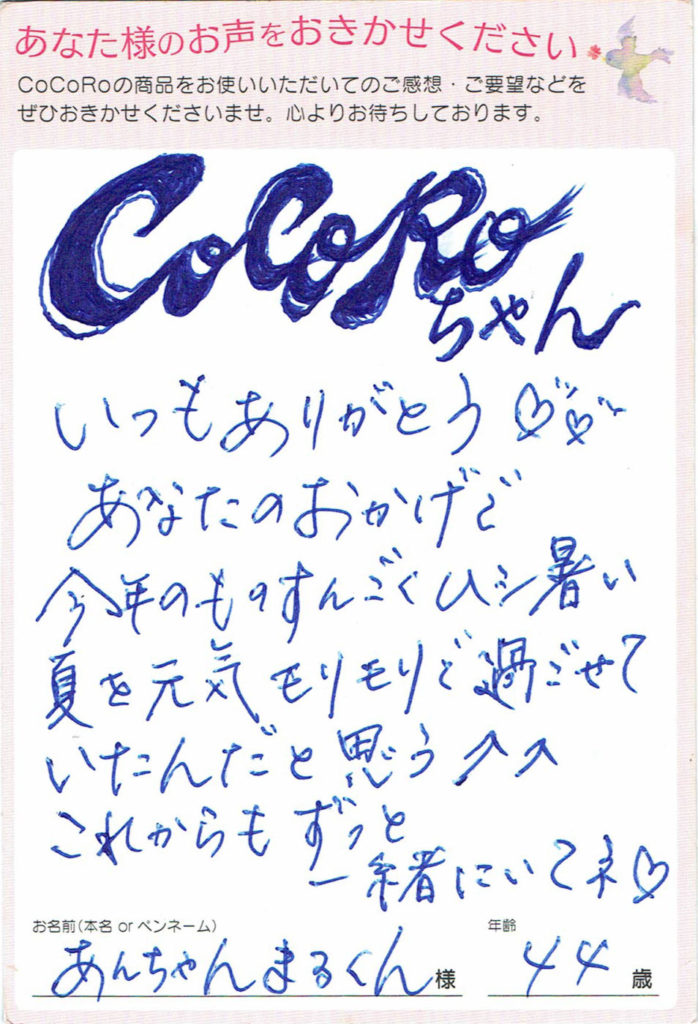 あなた様のお声をおきかせください
CoCoRoの商品をお使いいただいてのご感想・ご要望などを
ぜひおきかせくださいませ。心よりお待ちしております。
CoCoRo
ちゃん
いつもありがとう♡♡
あなたのおかげで
今年のものすんごくムシ暑い
夏を元気モリモリで過ごせて
いたんだと思う↗↗
これからもずっと
一緒にいてネ♡
お名前(本名 or ペンネーム)
年齢
あんちゃんまるくん様
44歳